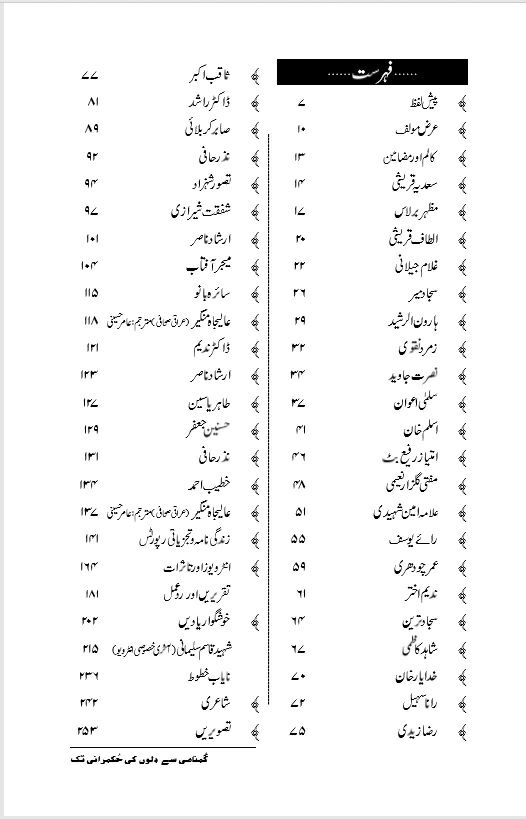 ......فہرست......
پیش لفظ ۷
عرض مولف ۱۰
کالم اور مضامین ۱۳
سعدیہ قریشی ۱۴
مظہر برلاس ۱۷
الطاف قریشی ۲۰
غلام جیلانی ۲۲
سجاد میر ۲۶
ہارون الرشید ۲۹
زمرد نقوی ۳۲
نصرت جاوید ۳۴
سلمیٰ اعوان ۳۷
اسلم خان ۴۱
امتیاز رفیع بٹ ۴۶
مفتی گلزار نعیمی ۴۸
علامہ امین شہیدی ۵۱
رائے یوسف ۵۵
عمر چودھری ۵۹
ندیم اختر ۶۱
سجاد ترین ۶۴
شاہد کاظمی ۶۷
خدایار خان ۷۰
رانا سہیل ۷۲
رضا زیدی ۷۵
ثاقب اکبر ۷۷
ڈاکٹر راشد ۸۱
صابر کربلائی ۸۹
نذر حافی ۹۲
تصور شہزاد ۹۴
شفقت شیرازی ۹۷
ارشاد ناصر ۱۰۱
میجر آفتاب ۱۰۴
سائرہ بانو ۱۱۵
عالیجاہ منگیر (عراقی صحافی) مترجم: عامر حسینی ۱۱۸
ڈاکٹر ندیم ۱۲۱
ارشاد ناصر ۱۲۳
طاہر یاسین ۱۲۷
حسنین جعفر ۱۲۹
نذر حافی ۱۳۱
خطیب احمد ۱۳۴
عالیجاہ منگیر (عراقی صحافی) مترجم: عامر حسینی ۱۳۷
زندگی نامہ و تجزیاتی رپورٹس ۱۴۱
انٹرویوز اور تاثرات ۱۶۴
تقریریں اور ردعمل ۱۸۱
خوشگوار یادیں ۲۰۲
شہید قاسم سلیمانی (آخری خصوصی انٹرویو) ۲۱۵
نایاب خطوط ۲۳۶
شاعری ۲۴۲
تصویریں ۲۵۳
گمنامی سے دلوں کی حکمرانی تک